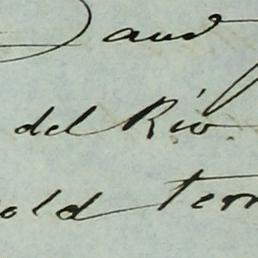 and
del Rio
old ten